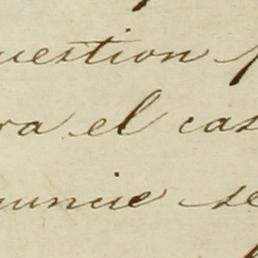 uestion
ra el cas
nuncie se